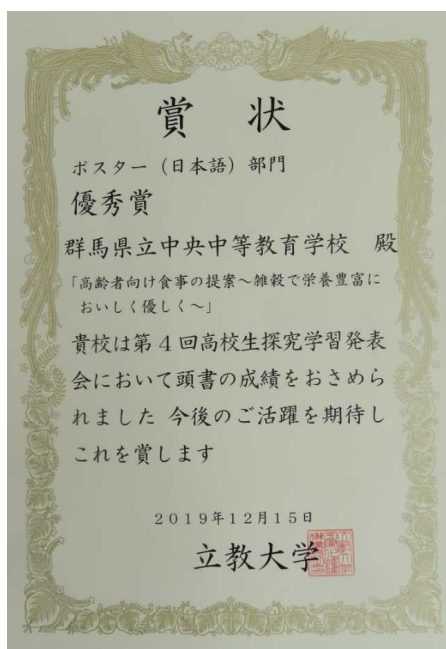 賞 状
ポスター（日本語）部門
優秀賞
群馬県立中央中等教育学校 殿
「高齢者向け食事の提案～雑穀で栄養豊富に
おいしく優しく～」
貴校は第4回高校生探究学習発表
会において頭書の成績をおさめら
れました 今後のご活躍を期待し
これを賞します
2019年12月15日
立教大学